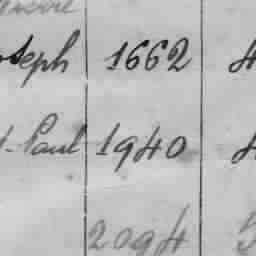 oseph 1662 4
t-Paul 1940 4
2094 5